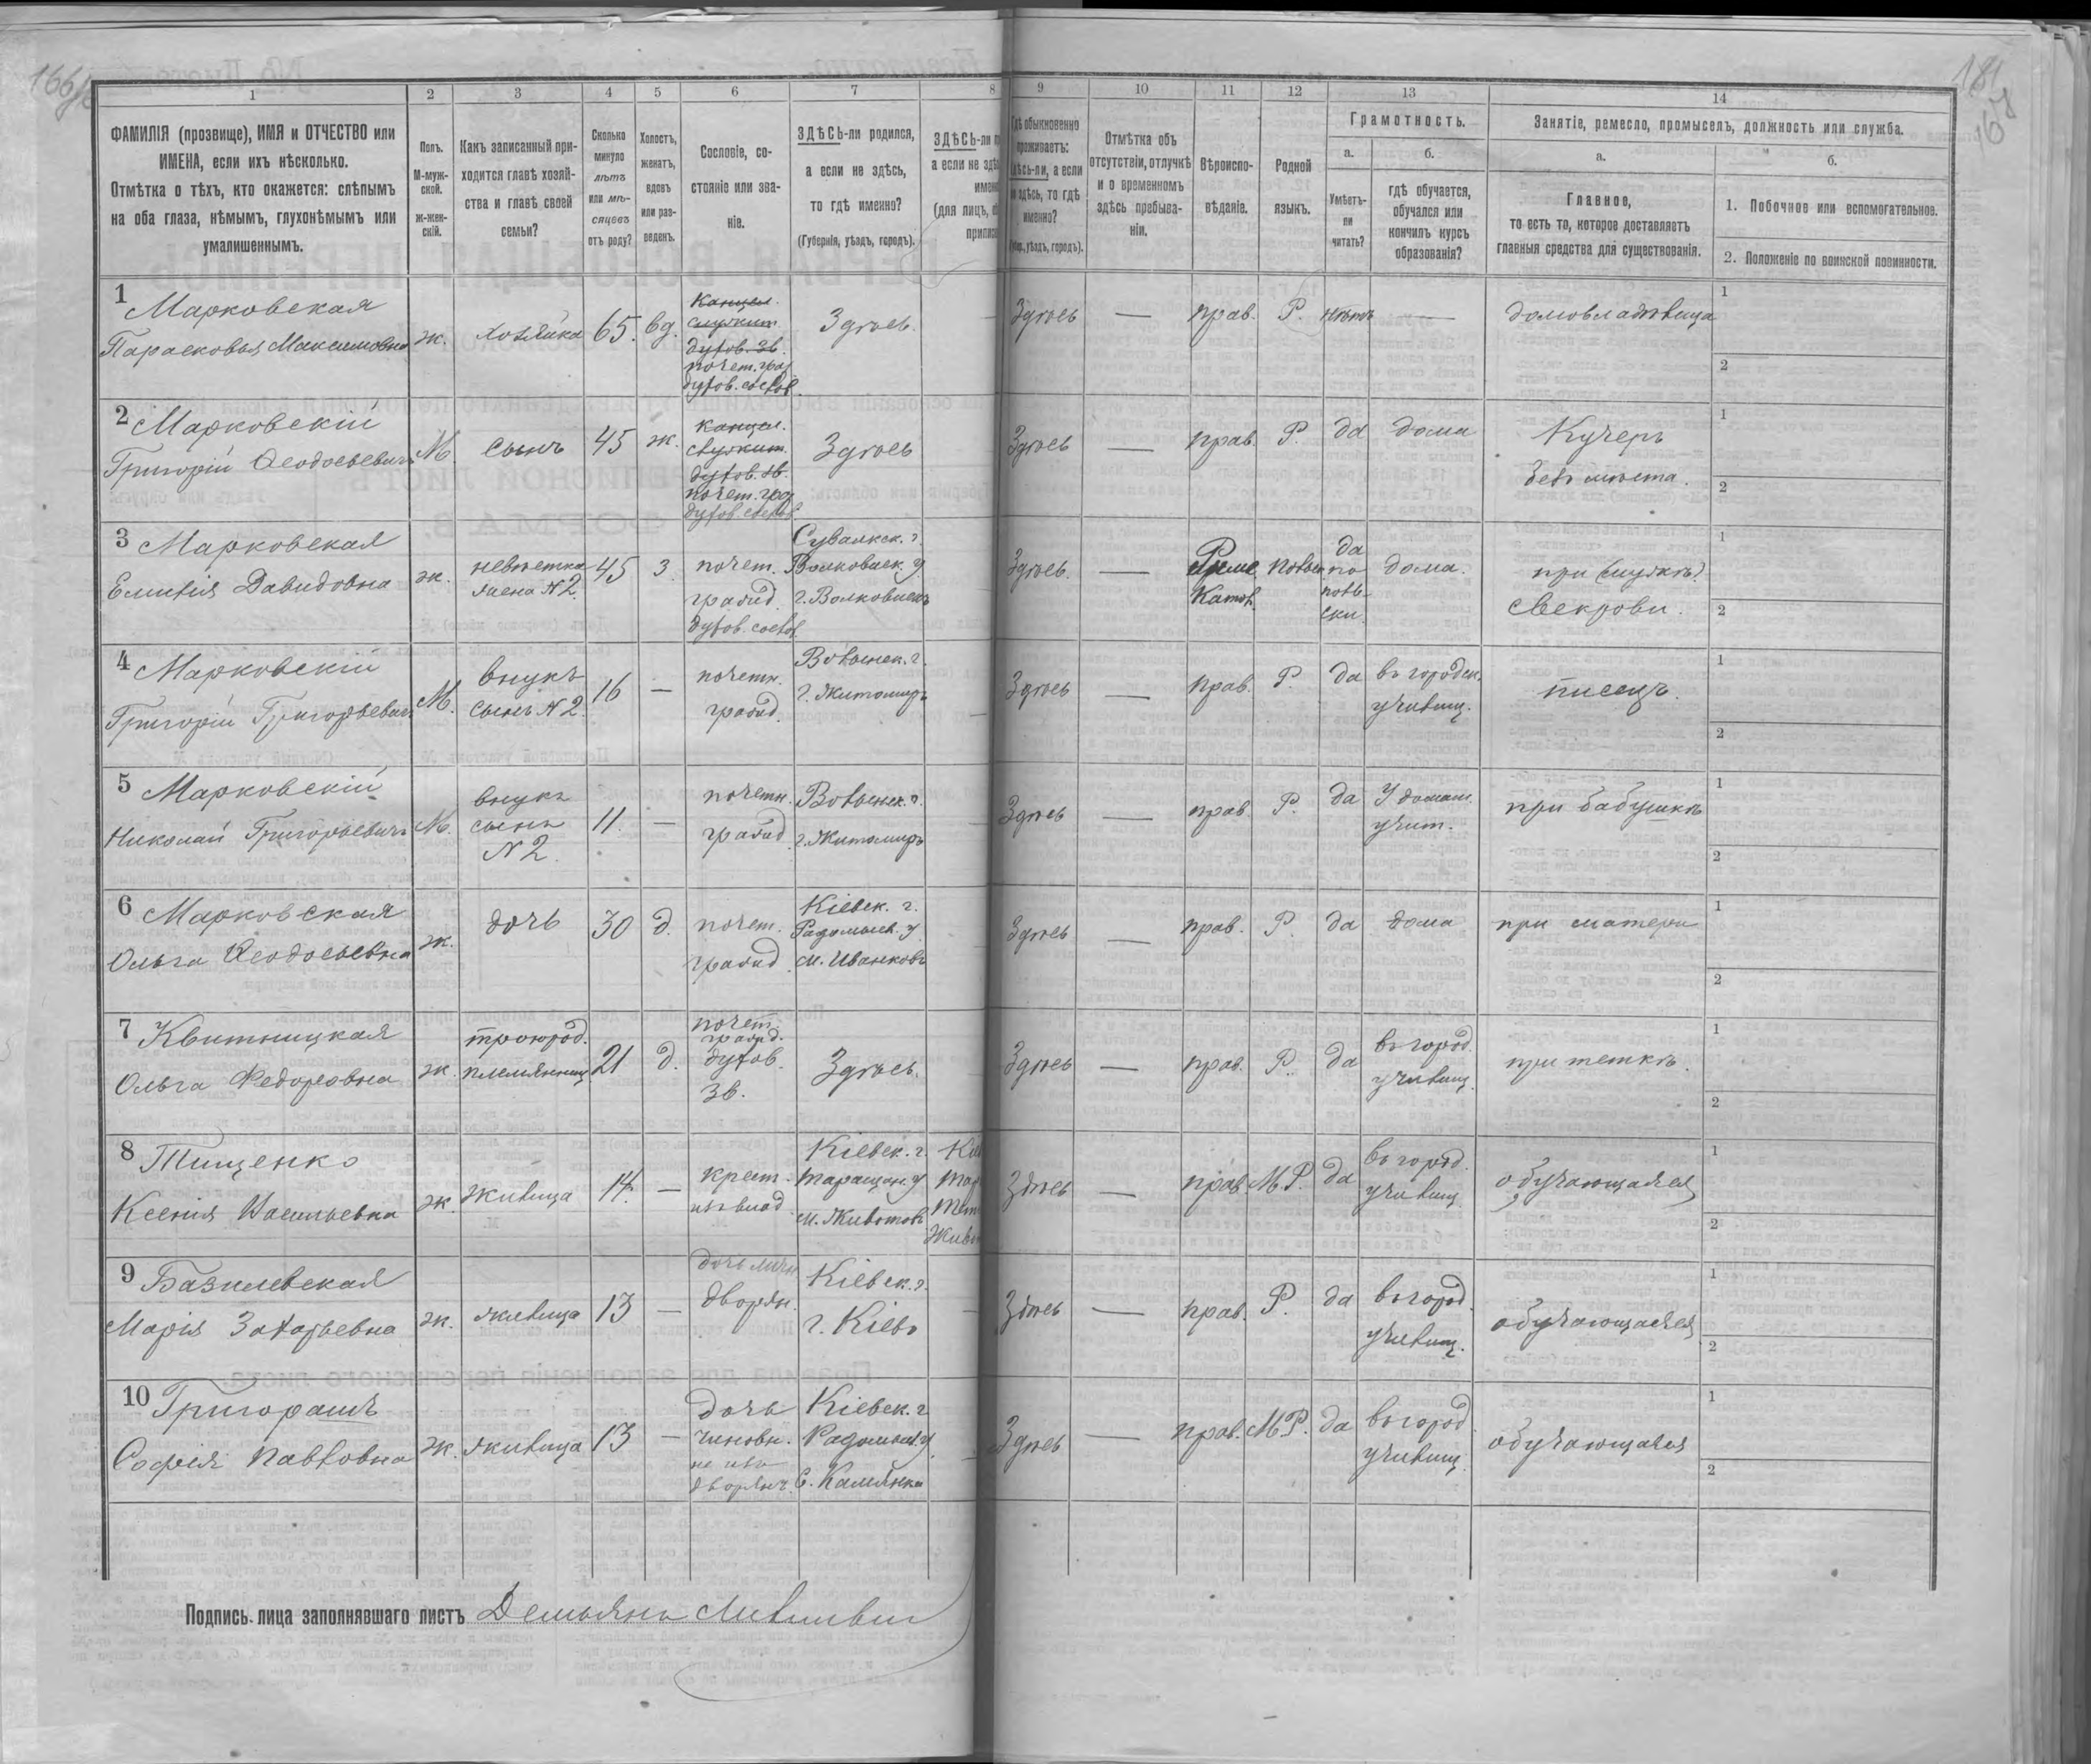 166/2
181
167
1
2
3
4
5
6
7
8
9
10
11
12
13
14
ФАМИЛІЯ (прозвище), ИМЯ и ОТЧЕСТВО или
ИМЕНА, если ихъ нѣсколько.
Отмѣтка о тѣхъ, кто окажется: слѣпымъ
на оба глаза, нѣмымъ, глухонѣмымъ или
умалишеннымъ.
Полъ.
М-муж-
ской.
ж-жен-
скій.
Какъ записанный при-
ходится главѣ хозяй-
ства и главѣ своей
семьи?
Сколько
минуло
лѣтъ
или мѣ-
сяцевъ
отъ роду?
Холостъ,
женатъ,
вдовъ
или раз-
веденъ.
Сословіе, со-
стояніе или зва-
ніе.
ЗДѢСЬ-ли родился,
а если не здѣсь,
то гдѣ именно?
(Губернія, уѣздъ, городъ).
ЗДѢСЬ-ли
а если не здѣ
имен
(для лицъ,
припис
Гдѣ обыкновенно
проживаетъ:
здѣсь-ли, а если
не здѣсь, то гдѣ
именно?
уѣздъ, городъ).
Отмѣтка объ
отсутствіи, отлучкѣ
и о временномъ
здѣсь пребыва-
ніи.
Вѣроиспо-
вѣданіе.
Родной
языкъ.
Грамотность.
а.
б.
Умѣетъ-
ли
читать?
гдѣ обучается,
обучался или
кончилъ курсъ
образованія?
Занятіе, ремесло, промыселъ, должность или служба.
а.
б.
Главное,
то есть то, которое доставляетъ
главныя средства для существованія.
1. Побочное или вспомогательное.
2. Положеніе по воинской повинности.
1 Марковская
Парасковья Максимовна
ж.
хозяйка
65.
вд.
Канцел.
служит.
духов. зв.
почет. граж
духов. сослов.
Здѣсь.
Здѣсь
—
прав.
Р.
нѣтъ
—
домовладѣлица
1
2
2 Марковскій
Григорій Ѳеодосьевичъ
М.
сынъ
45
ж.
канцел.
служит.
духов. зв.
почет. граж
духов. сослов
Здѣсь
Здѣсь
—
прав.
Р.
да
дома
Кучеръ
безъ мѣста.
1
2
3 Марковская
Емилія Давидовна
ж.
невѣстка
жена N 2.
45
З.
почет.
гражд.
духов. сослов.
Сувалкск. г.
Волковышск. у
г. Волковышкъ
Здѣсь.
—
Риме
Катол.
польск
да
по
поль-
ски.
дома.
при (мужѣ).
свекрови.
1
2
4 Марковскій
Григорій Григорьевичъ
М.
внукъ
сынъ N 2.
16
—
почетн.
гражд.
Волынск. г.
г. Житомиръ
Здѣсь
—
прав.
Р.
да
въ городск.
училищ.
писецъ.
1
2
5 Марковскій
Николай Григорьевичъ
М.
внукъ
сынъ
N 2.
11.
—
почетн.
гражд
Волынск. г.
г. Житомиръ
Здѣсь
—
прав.
Р.
да
У домашн.
учит.
при бабушкѣ
1
2
6 Марковская
Ольга Ѳеодосьевна
ж.
дочь
30
д.
почет.
гражд.
Кіевск. г.
Радомысл. у
м. Иванковъ
Здѣсь
—
прав.
Р.
да
дома
при матери
1
2
7 Квитницкая
Ольга Федоровна
ж.
троюрод.
племянниц
21
д.
почет.
гражд.
духов.
зв.
Здѣсь.
Здѣсь
—
прав.
Р.
да
въ город.
училищ.
при теткѣ.
1
2
8 Тищенко
Ксенія Васильевна
ж.
жилица
14.
—
крест.
изъ влад
Кіевск. г.
Таращан. у
м. Животовъ
Здѣсь
—
прав.
М.Р.
да
въ город.
училищ
обучающаяся
1
2
9 Базилевская
Марія Захарьевна
ж.
жилица
13
—
дочь личн
дворян.
Кіевск. г.
г. Кіевъ
Здѣсь
—
прав.
Р.
да
въ город.
училищ.
обучающаяся
1
2
10 Григорашъ
Софія Павловна
ж.
жилица
13
—
дочь
чиновн.
не изъ
дворянъ.
Кіевск. г.
Радомысл. у
с. Камянка
Здѣсь
—
прав.
М.Р.
да
въ город
училищ.
обучающаяся
1
2
Подпись лица заполнявшаго листъ Демьянъ